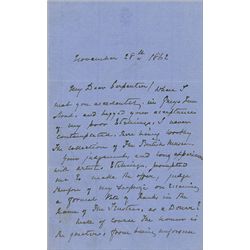 November 28th 1862
My Dear Carpenter/ When I
met you accidently, in Grays Inn
and begged your acceptance
of my poor Etchings, I never
contemplated, their being worthy
the collection of the British Museum
Your judgement, and long experience
with artists Etchings, prompted
me to make the offer, judge
therefore of my surprise on receiving
a formal Vote of thanks in the
name of the Trustees, as a Donor!
course the honor is
the greater, from being